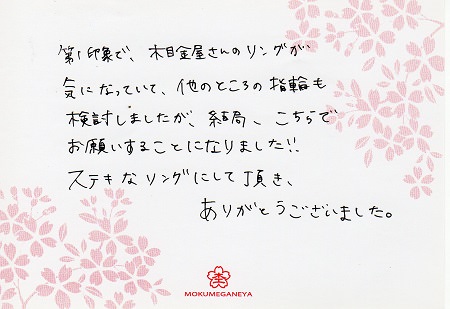 第1印象で、杢目金屋さんのリングが
気になっていて、他のところの指輪も
検討しましたが、結局、こちらで
お願いすることになりました!!
ステキなリングにして頂き、
ありがとうございました。
MOKUMEGANEYA